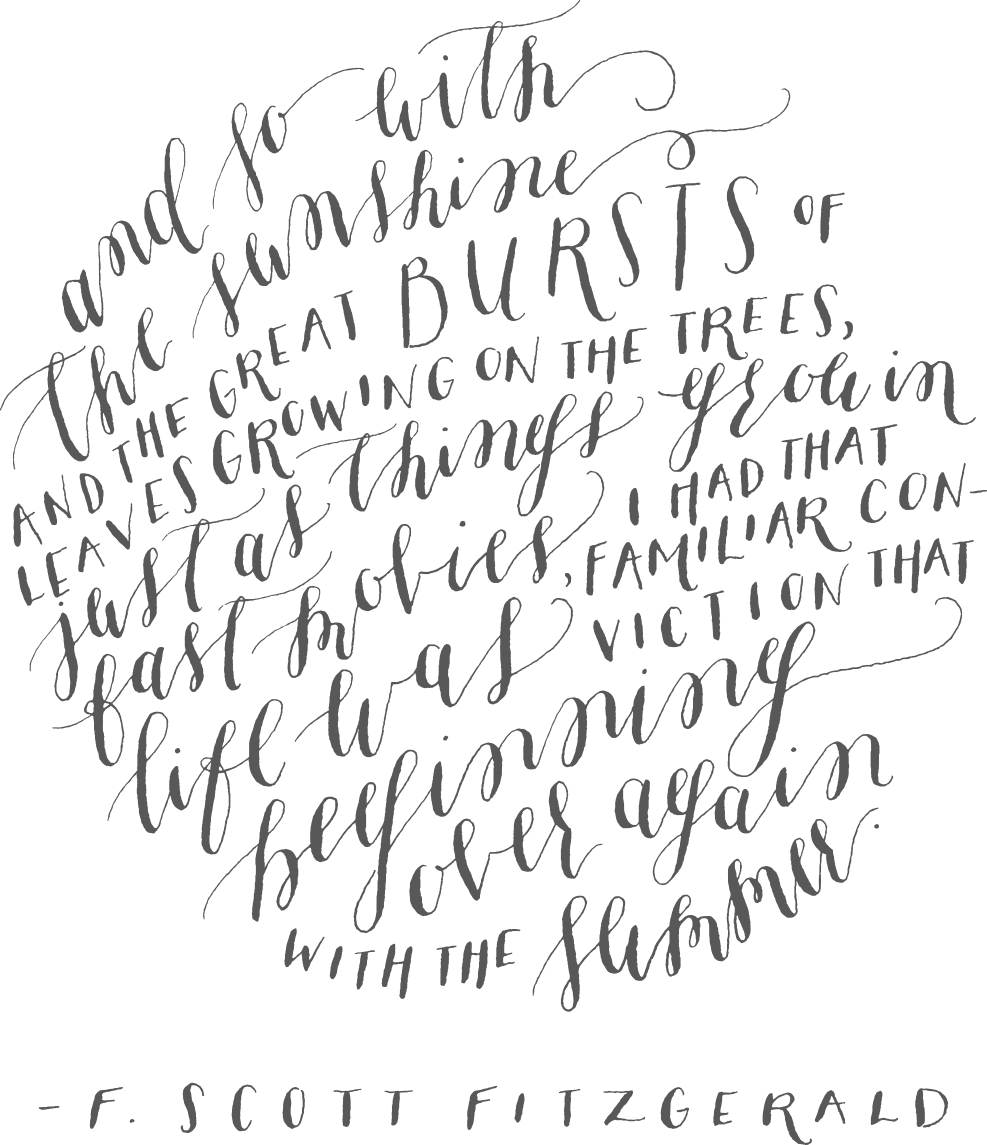 and so with
the sunshine
AND THE GREAT BURSTS OF
LEAVES GROWING ON THE TREES,
just as things grow in
fast movies, I HAD THAT
FAMILIAR CON-
VICTION THAT
life was
beginning
over again
WITH THE summer.
- F. SCOTT FITZGERALD